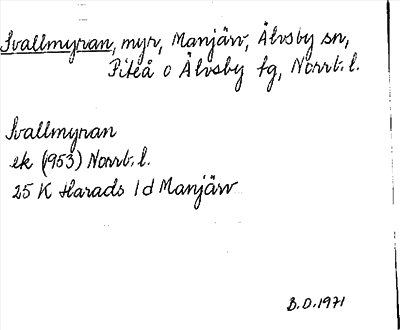 Svallmyran, myr, Manjärv, Älvsby sn,
Piteå o Älvsby tg, Norrb. l.
Svallmyran
ek (1953) Norrb. l.
25 K Harads 1 d Manjärv
B.D. 1971